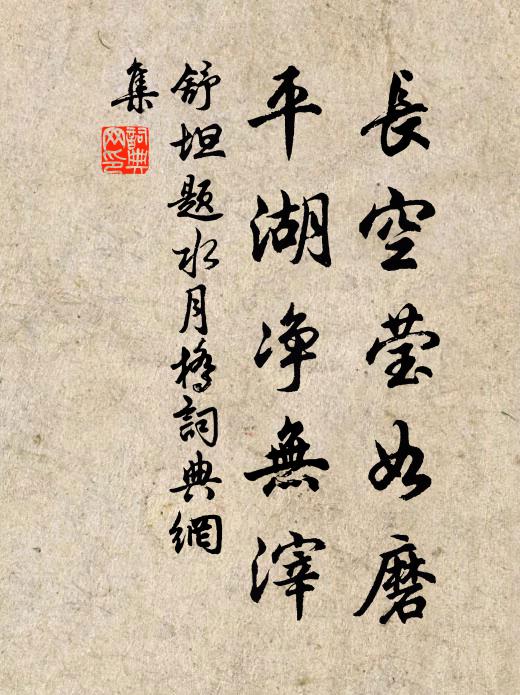 長空莹如磨
平湖净無滓
舒坦题水月橋詞典網
集
詞典网印